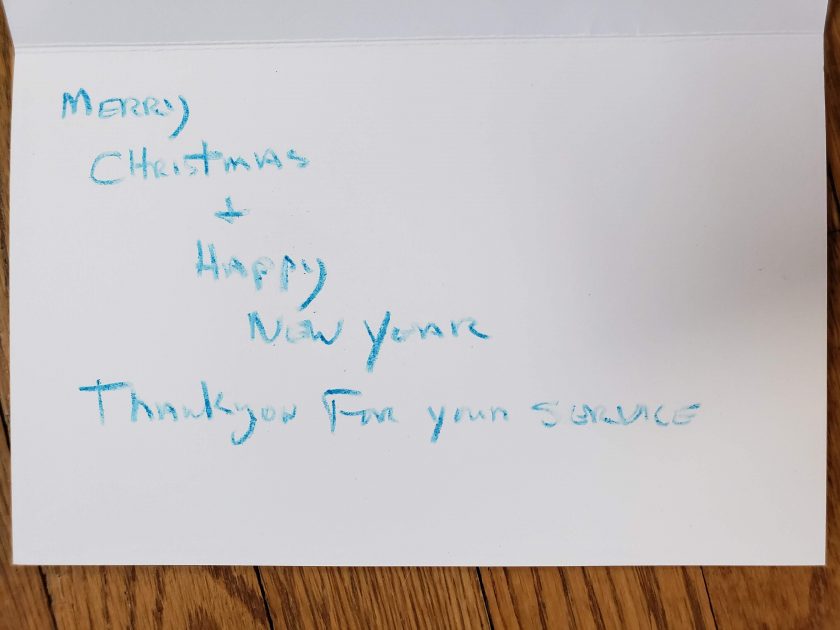 MERRY
CHRistmAS
+
HAPPY
NEW YEAR
Thankyou For your SERVICE